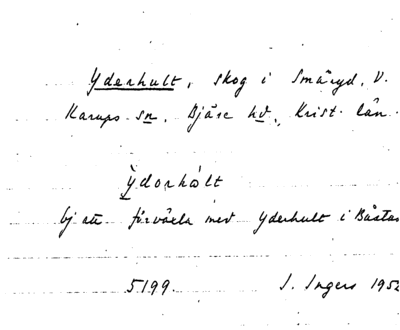 Yderhult, skog i Småryd, V.
Karups sn, Bjäre hd, Krist. län.
ỳdorhólt
Ej att förväxla med Yderhult i Båstad
5199. I. Ingers 1952